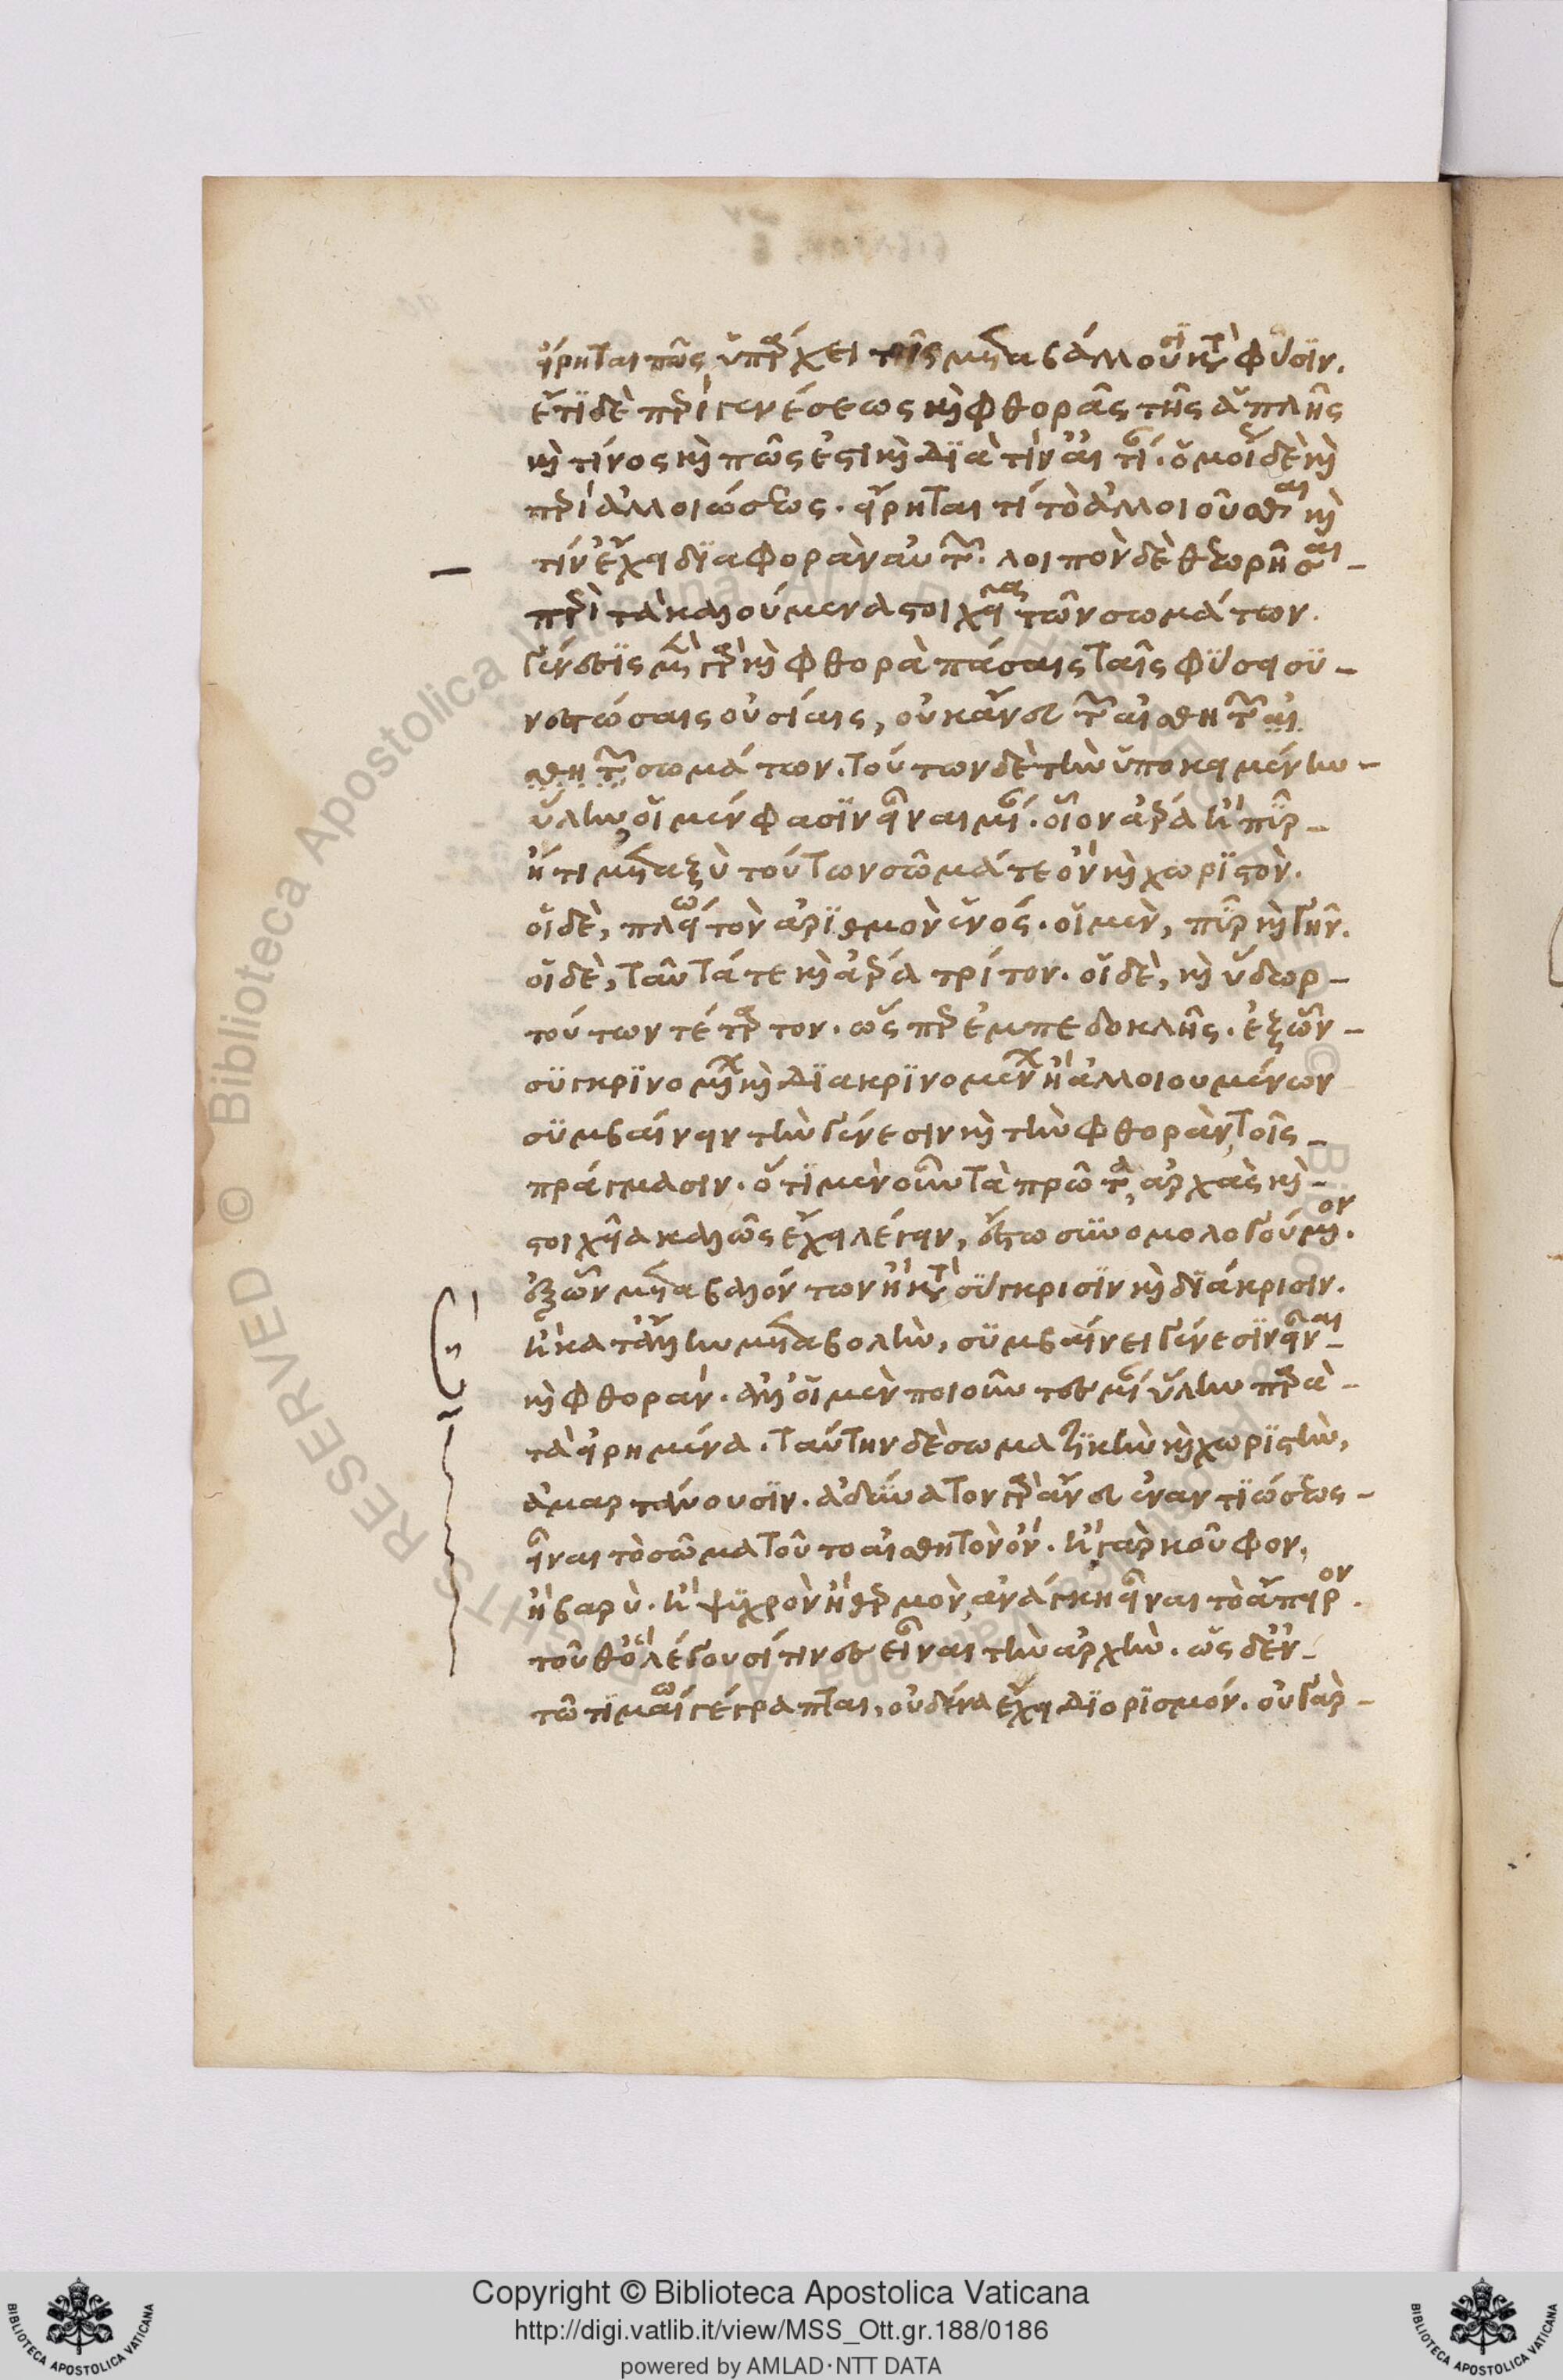 εἴρηται πῶς ὑπάρχει τοῖς μεταβάλλουσι κατὰ φύσιν.
ἔτι δὲ περὶ γενέσεως καὶ φθορᾶς τῆς ἁπλῆς
καὶ τίνος καὶ πῶς ἐστὶ καὶ διὰ τίν' αἰτίαν. ὁμοίως δὲ καὶ
περὶ ἀλλοιώσεως. εἴρηται τί τὸ ἀλλοιοῦσθαι καὶ
τίν' ἔχει διαφορὰν αὐτῶν. λοιπὸν δὲ θεωρῆσαι
περὶ τὰ καλούμενα στοιχεῖα τῶν σωμάτων.
γένεσις μὲν γὰρ καὶ φθορὰ πάσαις ταῖς φύσει συ-
νεστώσαις οὐσίαις, οὐκ ἄνευ τῶν αἰσθητῶν αἰ
σθητῶν σωμάτων. τούτων δὲ τὴν ὑποκειμένην
ὕλην, οἱ μέν φασιν εἶναι μίαν. οἷον ἀέρα ἢ πῦρ
ἤ τι μεταξὺ τούτων σῶμά τε ὂν καὶ χωριστόν.
οἱ δὲ, πλείω τὸν ἀριθμὸν ἑνός. οἱ μὲν, πῦρ καὶ γῆν.
οἱ δὲ, ταῦτά τε καὶ ἀέρα τρίτον. οἱ δὲ, καὶ ὕδωρ
τούτων τέταρτον. ὥσπερ ἐμπεδοκλῆς. ἐξ ὧν
συγκρινομένων καὶ διακρινομένων ἢ ἀλλοιουμένων
συμβαίνειν τὴν γένεσιν καὶ τὴν φθορὰν, τοῖς
πράγμασιν. ὅτι μὲν οὖν τὰ πρῶτα, ἀρχὰς καὶ
στοιχεῖα καλῶς ἔχει λέγειν, ἔστω συνομολογούμενον.
ἐξ ὧν μεταβαλλόντων ἢ κατὰ σύγκρισιν καὶ διάκρισιν.
ἢ κατ' ἄλλην μεταβολὴν, συμβαίνει γένεσιν εἶναι
καὶ φθοράν. ἀλλ' οἱ μὲν ποιοῦντες μίαν ὕλην παρὰ
τὰ εἰρημένα. ταύτην δὲ σωματικὴν καὶ χωριστὴν,
ἁμαρτάνουσιν. ἀδύνατον γὰρ ἄνευ ἐναντιώσεως
εἶναι τὸ σῶμα τοῦτο αἰσθητὸν ὄν. ἢ γὰρ κοῦφον,
ἢ βαρὺ. ἢ ψυχρὸν ἢ θερμὸν, ἀνάγκη εἶναι τὸ ἄπειρον.
τοῦθ' ὃ λέγουσί τινες εἶναι τὴν ἀρχὴν. ὡς δ' ἐν
τῶ τιμαίω γέγραπται, οὐδένα ἔχει διορισμόν. οὐ γὰρ
Copyright © Biblioteca Apostolica Vaticana
http://digi.vatlib.it/view/MSS_Ott.gr.188/0186
powered by AMLAD·NTT DATA